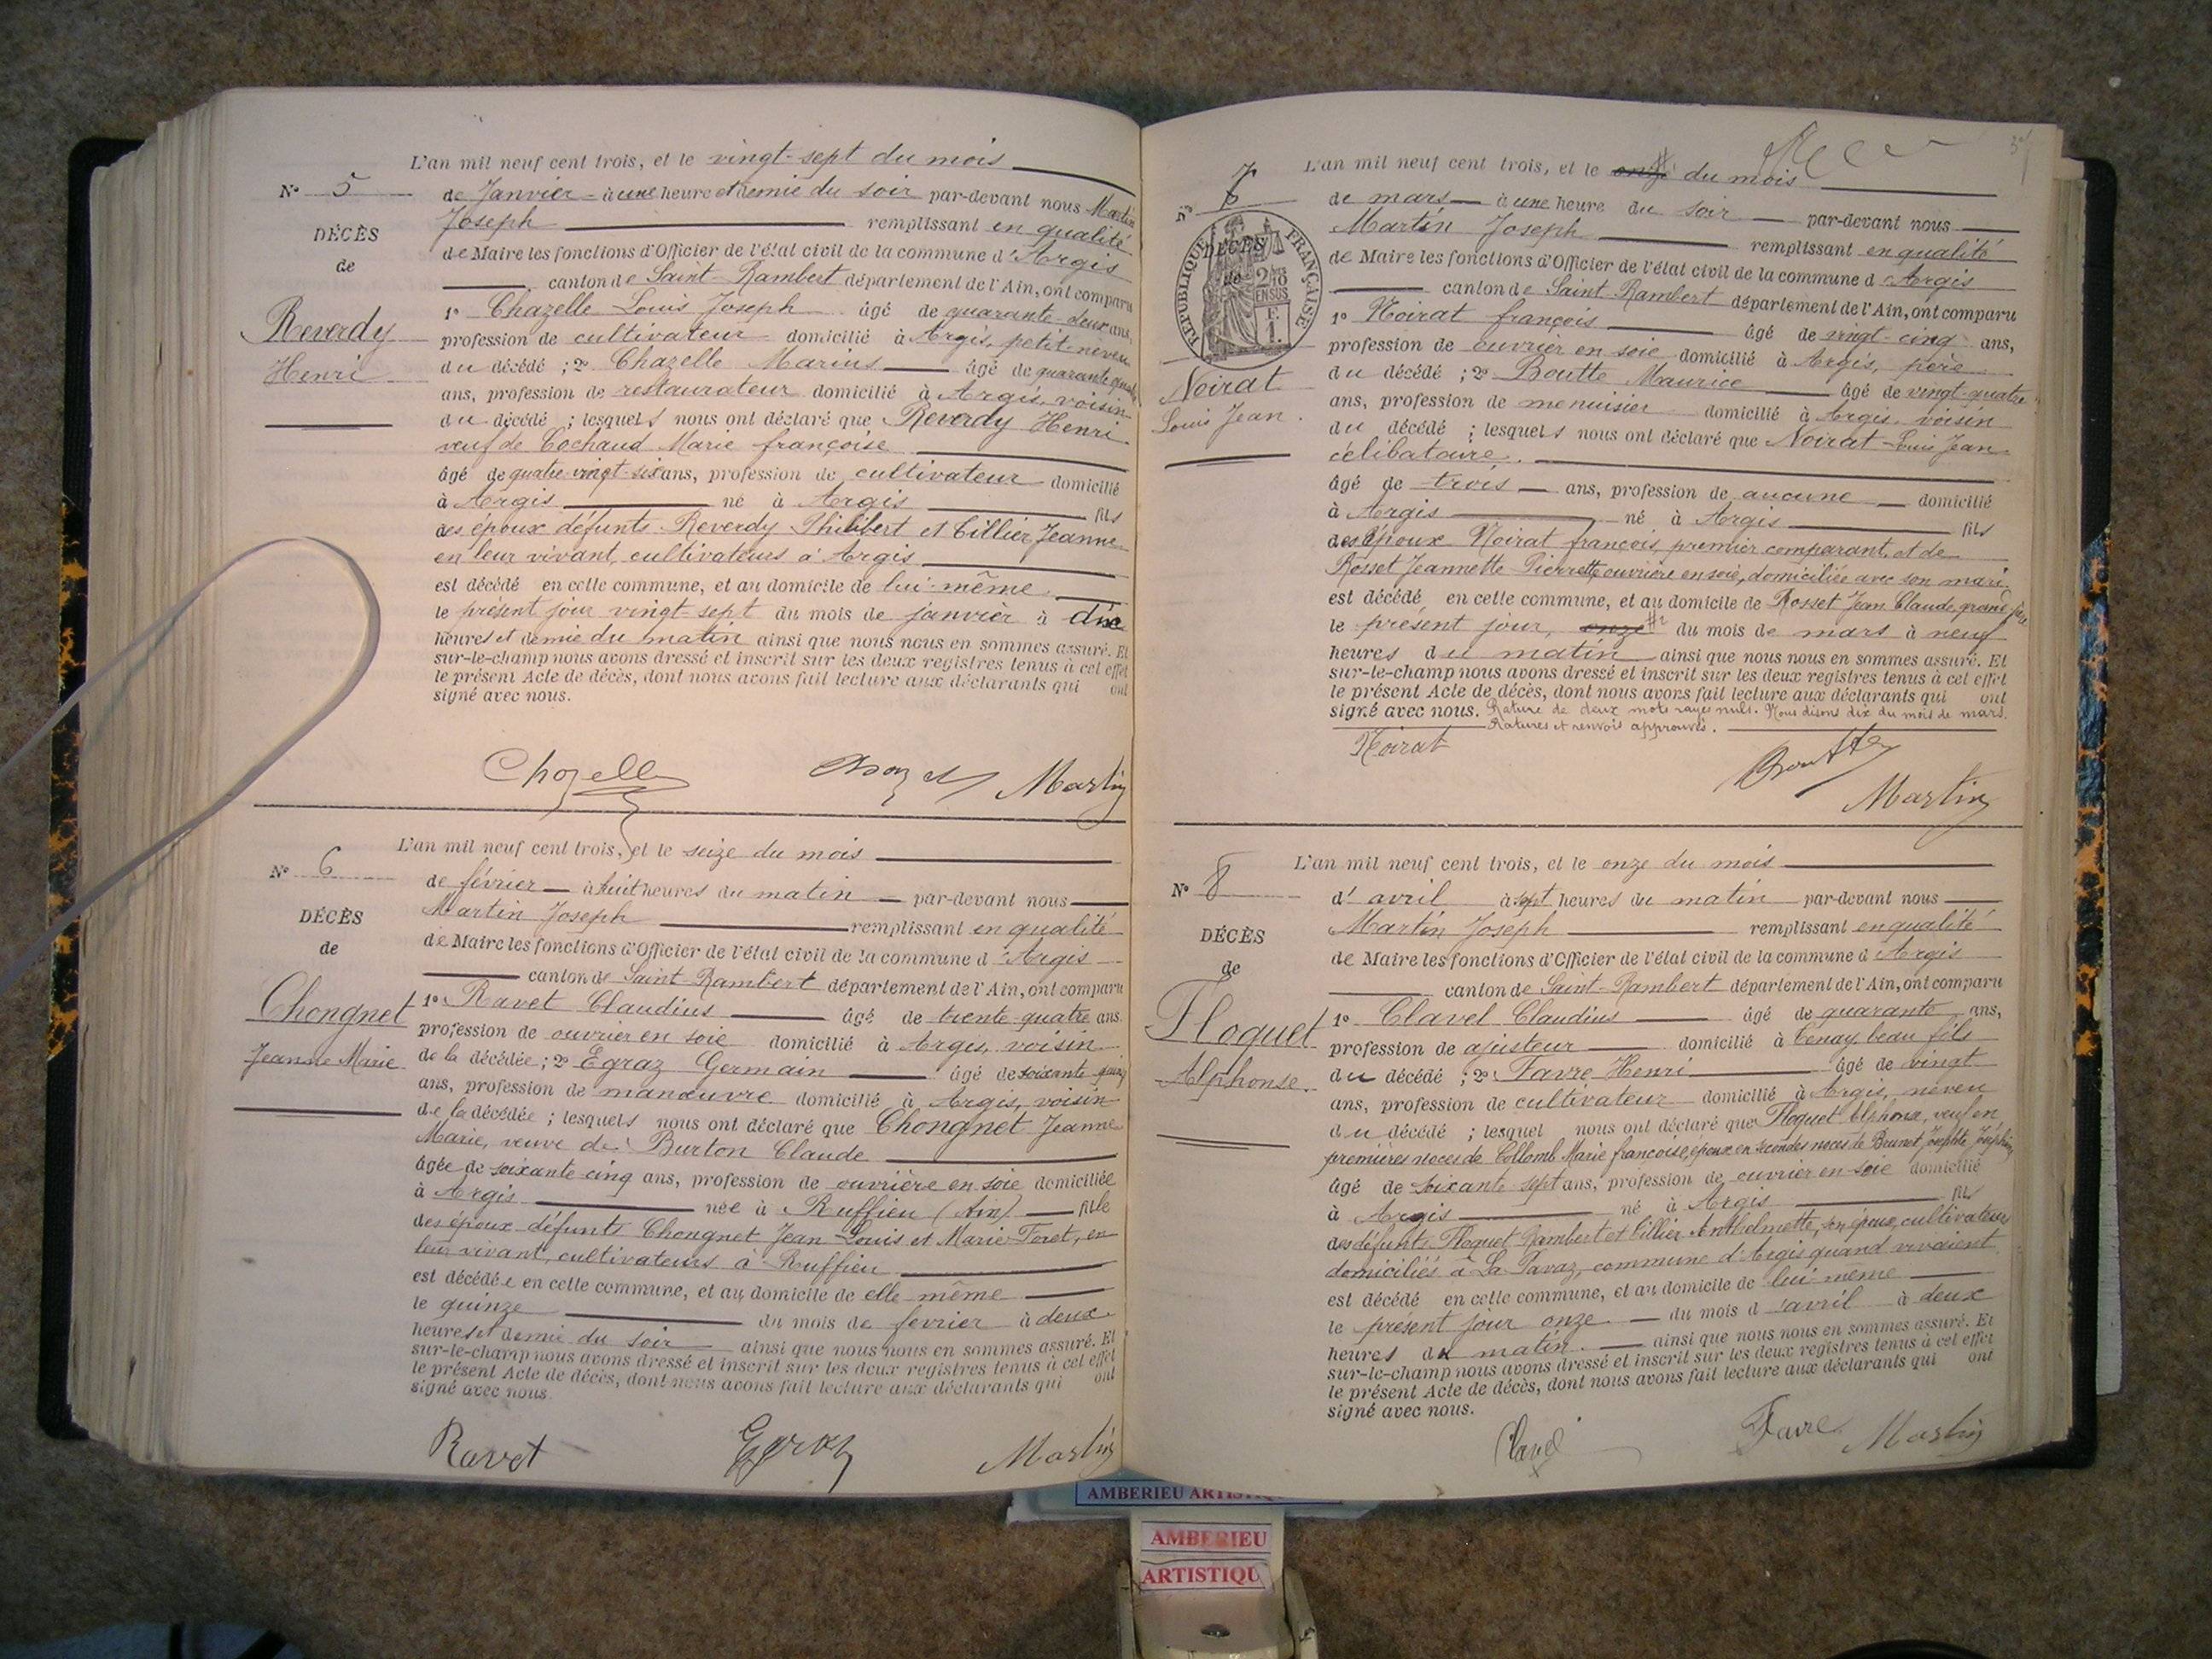 L'an mil neuf cent trois, et le vingt-sept du mois
N° 5
de Janvier à une heure et demie du soir par-devant nous Martin
Joseph remplissant en qualité
DÉCÈS
de Maire les fonctions d'Officier de l'état civil de la commune d'Argis
de
canton de Saint-Rambert département de l'Ain, ont comparu
1° Chazelle Louis Joseph âgé de quarante-deux ans,
Reverdy
profession de cultivateur domicilié à Argis, petit-neveu
Henri
du décédé ; 2° Chazelle Marius âgé de quarante
ans, profession de restaurateur domicilié à Argis, voisin
du décédé ; lesquels nous ont déclaré que Reverdy Henri
veuf de Cochaud Marie françoise
âgé de quatre-vingt-six ans, profession de cultivateur domicilié
à Argis né à Argis fils
des époux défunts Reverdy Philibert et Cillier Jeanne
en leur vivant, cultivateurs à Argis
est décédé en cette commune, et au domicile de lui-même
le présent jour vingt-sept du mois de janvier à dix
heures et demie du matin ainsi que nous nous en sommes assuré. Et
sur-le-champ nous avons dressé et inscrit sur les deux registres tenus à cet effet
le présent Acte de décès, dont nous avons fait lecture aux déclarants qui ont
signé avec nous.
Chazelle Chazelle Martin
L'an mil neuf cent trois, et le seize du mois
N° 6
de février à huit heures du matin par-devant nous
Martin Joseph remplissant en qualité
DÉCÈS
de Maire les fonctions d'Officier de l'état civil de la commune d'Argis
de
canton de Saint Rambert département de l'Ain, ont comparu
Chongnet
1° Ravet Claudius âgé de trente-quatre ans
profession de ouvrier en soie domicilié à Argis, voisin
Jeanne Marie
de la décédée ; 2° Egraz Germain âgé de soixante quinze
ans, profession de manœuvre domicilié à Argis, voisin
de la décédée ; lesquels nous ont déclaré que Chongnet Jeanne
Marie, veuve de Burton Claude
âgée de soixante-cinq ans, profession de ouvrière en soie domiciliée
à Argis née à Ruffieu (Ain) fille
des époux défunts Chongnet Jean Louis et Marie Foret, en
leur vivant, cultivateurs à Ruffieu
est décédée en cette commune, et au domicile de elle-même
le quinze du mois de fevrier à deux
heures et demie du soir ainsi que nous nous en sommes assuré. Et
sur-le-champ nous avons dressé et inscrit sur les deux registres tenus à cet effet
le présent Acte de décès, dont nous avons fait lecture aux déclarants qui ont
signé avec nous.
Ravet Egraz Martin
L'an mil neuf cent trois, et le onze du mois
N° 7
de mars à une heure du soir par-devant nous
Martin Joseph remplissant en qualité
DÉCÈS
de
RÉPUBLIQUE FRANÇAISE
2/10 EN SUS
F. 1.
de Maire les fonctions d'Officier de l'état civil de la commune d'Argis
canton de Saint-Rambert département de l'Ain, ont comparu
1° Noirat françois âgé de vingt-cinq ans,
profession de ouvrier en soie domicilié à Argis, père
Noirat
du décédé ; 2° Boutte Maurice âgé de vingt-quatre
Louis Jean
ans, profession de menuisier domicilié à Argis, voisin
du décédé ; lesquels nous ont déclaré que Noirat Louis Jean
célibataire.
âgé de trois ans, profession de aucune domicilié
à Argis né à Argis fils
des époux Noirat françois, premier comparant, et de
Rosset Jeannette Pierrette ouvrière en soie, domiciliée avec son mari
est décédé en cette commune, et au domicile de Rosset Jean Claude grand-père
le présent jour, onze du mois de mars à neuf
heures du matin ainsi que nous nous en sommes assuré. Et
sur-le-champ nous avons dressé et inscrit sur les deux registres tenus à cet effet
le présent Acte de décès, dont nous avons fait lecture aux déclarants qui ont
signé avec nous. Rature de deux mots rayés nuls. Nous disons dix du mois de mars.
Ratures et renvois approuvés.
Noirat Boutte
Martin
L'an mil neuf cent trois, et le onze du mois
N° 8
d'avril à sept heures du matin par-devant nous
Martin Joseph remplissant en qualité
DÉCÈS
de Maire les fonctions d'Officier de l'état civil de la commune d'Argis
de
canton de Saint-Rambert département de l'Ain, ont comparu
1° Clavel Claudius âgé de quarante ans,
Floquet
profession de ajusteur domicilié à Tenay, beau fils
Alphonse
du décédé ; 2° Favre Henri âgé de vingt
ans, profession de cultivateur domicilié à Argis, neveu
du décédé ; lesquel nous ont déclaré que Floquet Alphonse, veuf en
premières noces de Collomb Marie françoise, époux en secondes noces de Brunet Josephte Joséphine
âgé de soixante sept ans, profession de ouvrier en soie domicilié
à Argis né à Argis fils
des défunts Floquet Rambert et Cillier Anthelmette, son épouse, cultivateurs
domiciliés à La Tavaz, commune d'Argis quand vivaient
est décédé en cette commune, et au domicile de lui-même
le présent jour onze du mois d'avril à deux
heures du matin ainsi que nous nous en sommes assuré. Et
sur-le-champ nous avons dressé et inscrit sur les deux registres tenus à cet effet
le présent Acte de décès, dont nous avons fait lecture aux déclarants qui ont
signé avec nous.
Clavel Favre Martin
AMBERIEU ARTISTIQU
AMBERIEU
ARTISTIQU